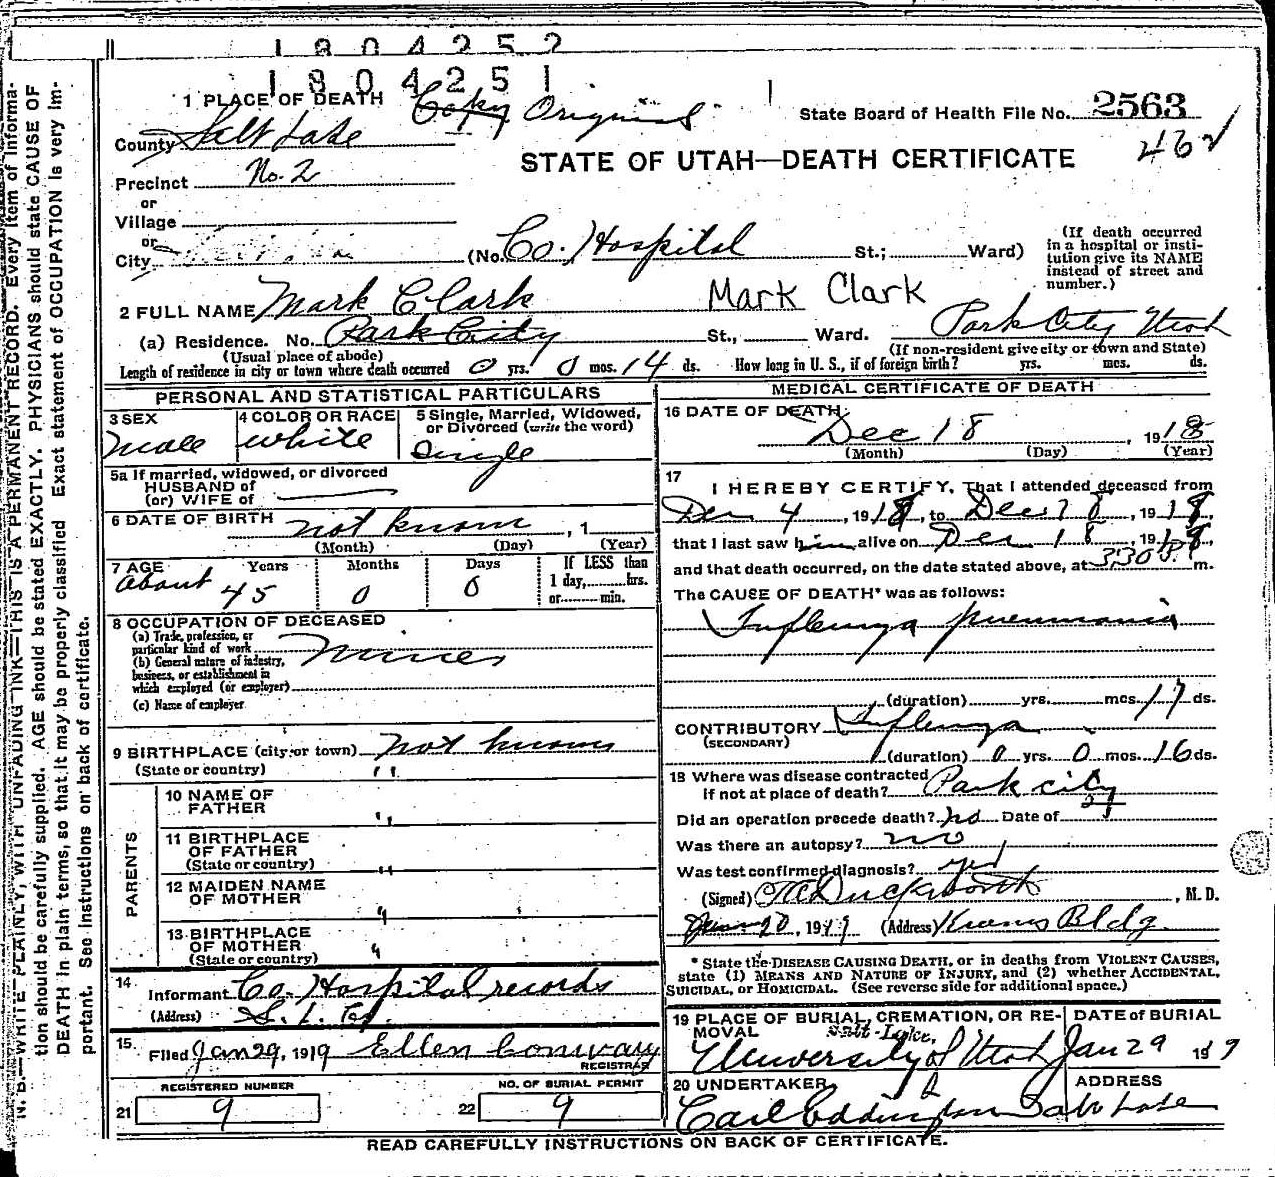 1804252
1804251
1 PLACE OF DEATH Copy Original
State Board of Health File No. 2563
County Salt Lake
462
STATE OF UTAH—DEATH CERTIFICATE
Precinct No. 2
or
Village
or
City (No. Co. Hospital St.; Ward)
(If death occurred in a hospital or insti-
tution give its NAME
instead of street and
number.)
2 FULL NAME Mark Clark Mark Clark
(a) Residence. No. Park City St., Ward. Park City Utah
(Usual place of abode) (If non-resident give city or town and State)
Length of residence in city or town where death occurred 0 yrs. 0 mos. 14 ds. How long in U. S., if of foreign birth? yrs. mos. ds.
PERSONAL AND STATISTICAL PARTICULARS
3 SEX male
4 COLOR OR RACE white
5 Single, Married, Widowed,
or Divorced (write the word)
Single
5a If married, widowed, or divorced
HUSBAND of
(or) WIFE of
6 DATE OF BIRTH not known, 1
(Month) (Day) (Year)
7 AGE Years Months Days If LESS than
1 day, hrs.
or min.
About 45 0 0
8 OCCUPATION OF DECEASED
(a) Trade, profession, or
particular kind of work Miner
(b) General nature of industry,
business, or establishment in
which employed (or employer)
(c) Name of employer
9 BIRTHPLACE (city or town) not known
(State or country) "
PARENTS
10 NAME OF
FATHER "
11 BIRTHPLACE
OF FATHER
(State or country) "
12 MAIDEN NAME
OF MOTHER "
13 BIRTHPLACE
OF MOTHER
(State or country) "
14
Informant Co. Hospital records
(Address) S. L. Cy.
15 Filed Jan 29, 1919 Ellen Conway
REGISTRAR
REGISTERED NUMBER
21 9
NO. OF BURIAL PERMIT
22 9
MEDICAL CERTIFICATE OF DEATH
16 DATE OF DEATH
Dec 18, 1918
(Month) (Day) (Year)
17
I HEREBY CERTIFY, That I attended deceased from
Dec 4, 1918, to Dec 18, 1918,
that I last saw him alive on Dec 18, 1918,
and that death occurred, on the date stated above, at 3:30 P. m.
The CAUSE OF DEATH* was as follows:
Influenza pneumonia
(duration) yrs. mos. 17 ds.
CONTRIBUTORY Influenza
(SECONDARY)
(duration) 0 yrs. 0 mos. 16 ds.
18 Where was disease contracted
If not at place of death? Park city
Did an operation precede death? no Date of
Was there an autopsy? no
Was test confirmed diagnosis? yes
(Signed) Duckworth, M. D.
Jan 20, 1919 (Address) Kearns Bldg.
* State the DISEASE CAUSING DEATH, or in deaths from VIOLENT CAUSES,
state (1) MEANS AND NATURE OF INJURY, and (2) whether ACCIDENTAL,
SUICIDAL, or HOMICIDAL. (See reverse side for additional space.)
19 PLACE OF BURIAL, CREMATION, OR RE-
MOVAL Salt Lake,
University of Utah
DATE OF BURIAL
Jan 29 1919
20 UNDERTAKER
Carl Eddington
ADDRESS
Salt Lake
READ CAREFULLY INSTRUCTIONS ON BACK OF CERTIFICATE.
N. B.—WRITE PLAINLY, WITH UNFADING INK—THIS IS A PERMANENT RECORD. Every item of informa-
tion should be carefully supplied. AGE should be stated EXACTLY. PHYSICIANS should state CAUSE OF
DEATH in plain terms, so that it may be properly classified. Exact statement of OCCUPATION is very im-
portant. See instructions on back of certificate.